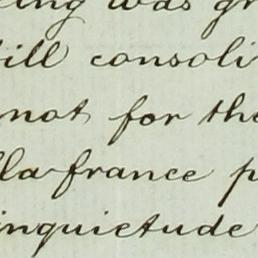 ling was gr
till consoli
not for the
lla-france p
inquietude